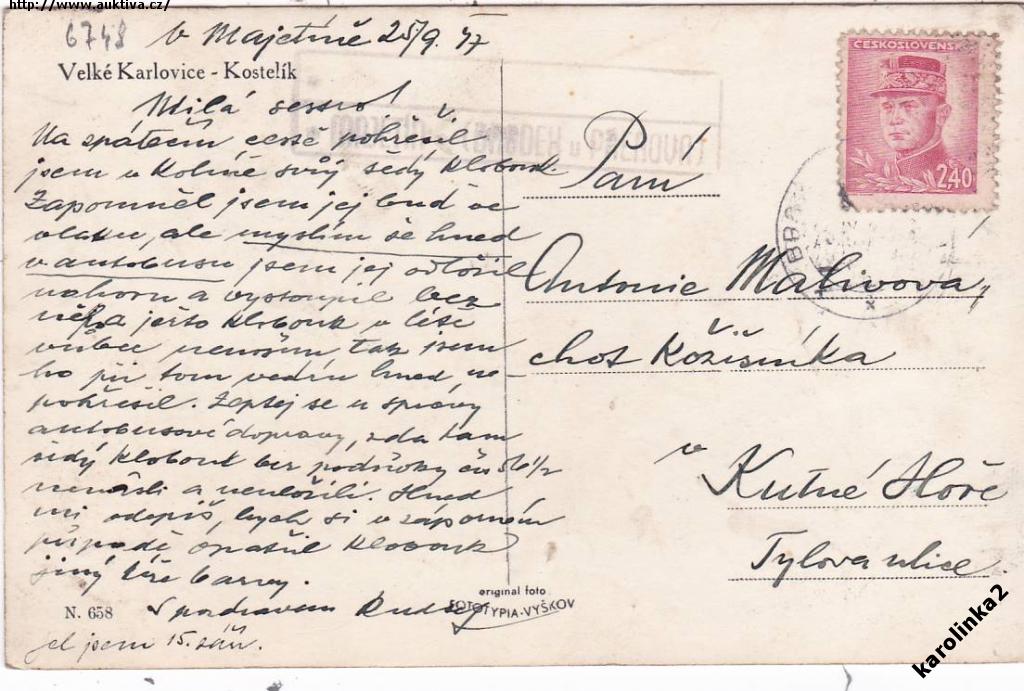 http://www.auktiva.cz/
6748
V Majetíně 25/9. 47
Velké Karlovice - Kostelík
Milá sestro!
Na zpáteční cestě pohřešil
jsem v Kolíně svůj šedý klobouk.
Zapomněl jsem jej buď ve
vlaku, ale myslím se hned
v autobusu jsem jej odložil
nahoru a vystoupil bez
něho a ješto klobouk v létě
vůbec nenosím, tak jsem
ho při tom vedru hned ne-
pohřešil. Zeptej se u správy
autobusové dopravy, zda tam
šedý klobouk bez podšívky čís 56 1/2
nenašli a neuložili. Hned
mi odepiš, bych si v záporném
případě opatřil klobouk
jiný téže barvy.
S pozdravem Rudolf
N. 658
jel jsem 15. září.
original foto
FOTOTYPIA-VYŠKOV
ČESKOSLOVENSKO
2,40
Paní
Antonie Malivova,
choť Kožišníka
v
Kutné Hoře
Tylova ulice.
karolinka2